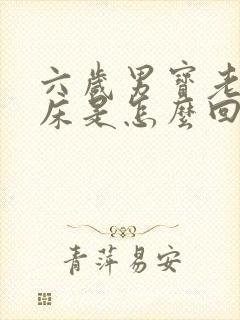 六歲男寶老
床是怎麼回
青萍易安